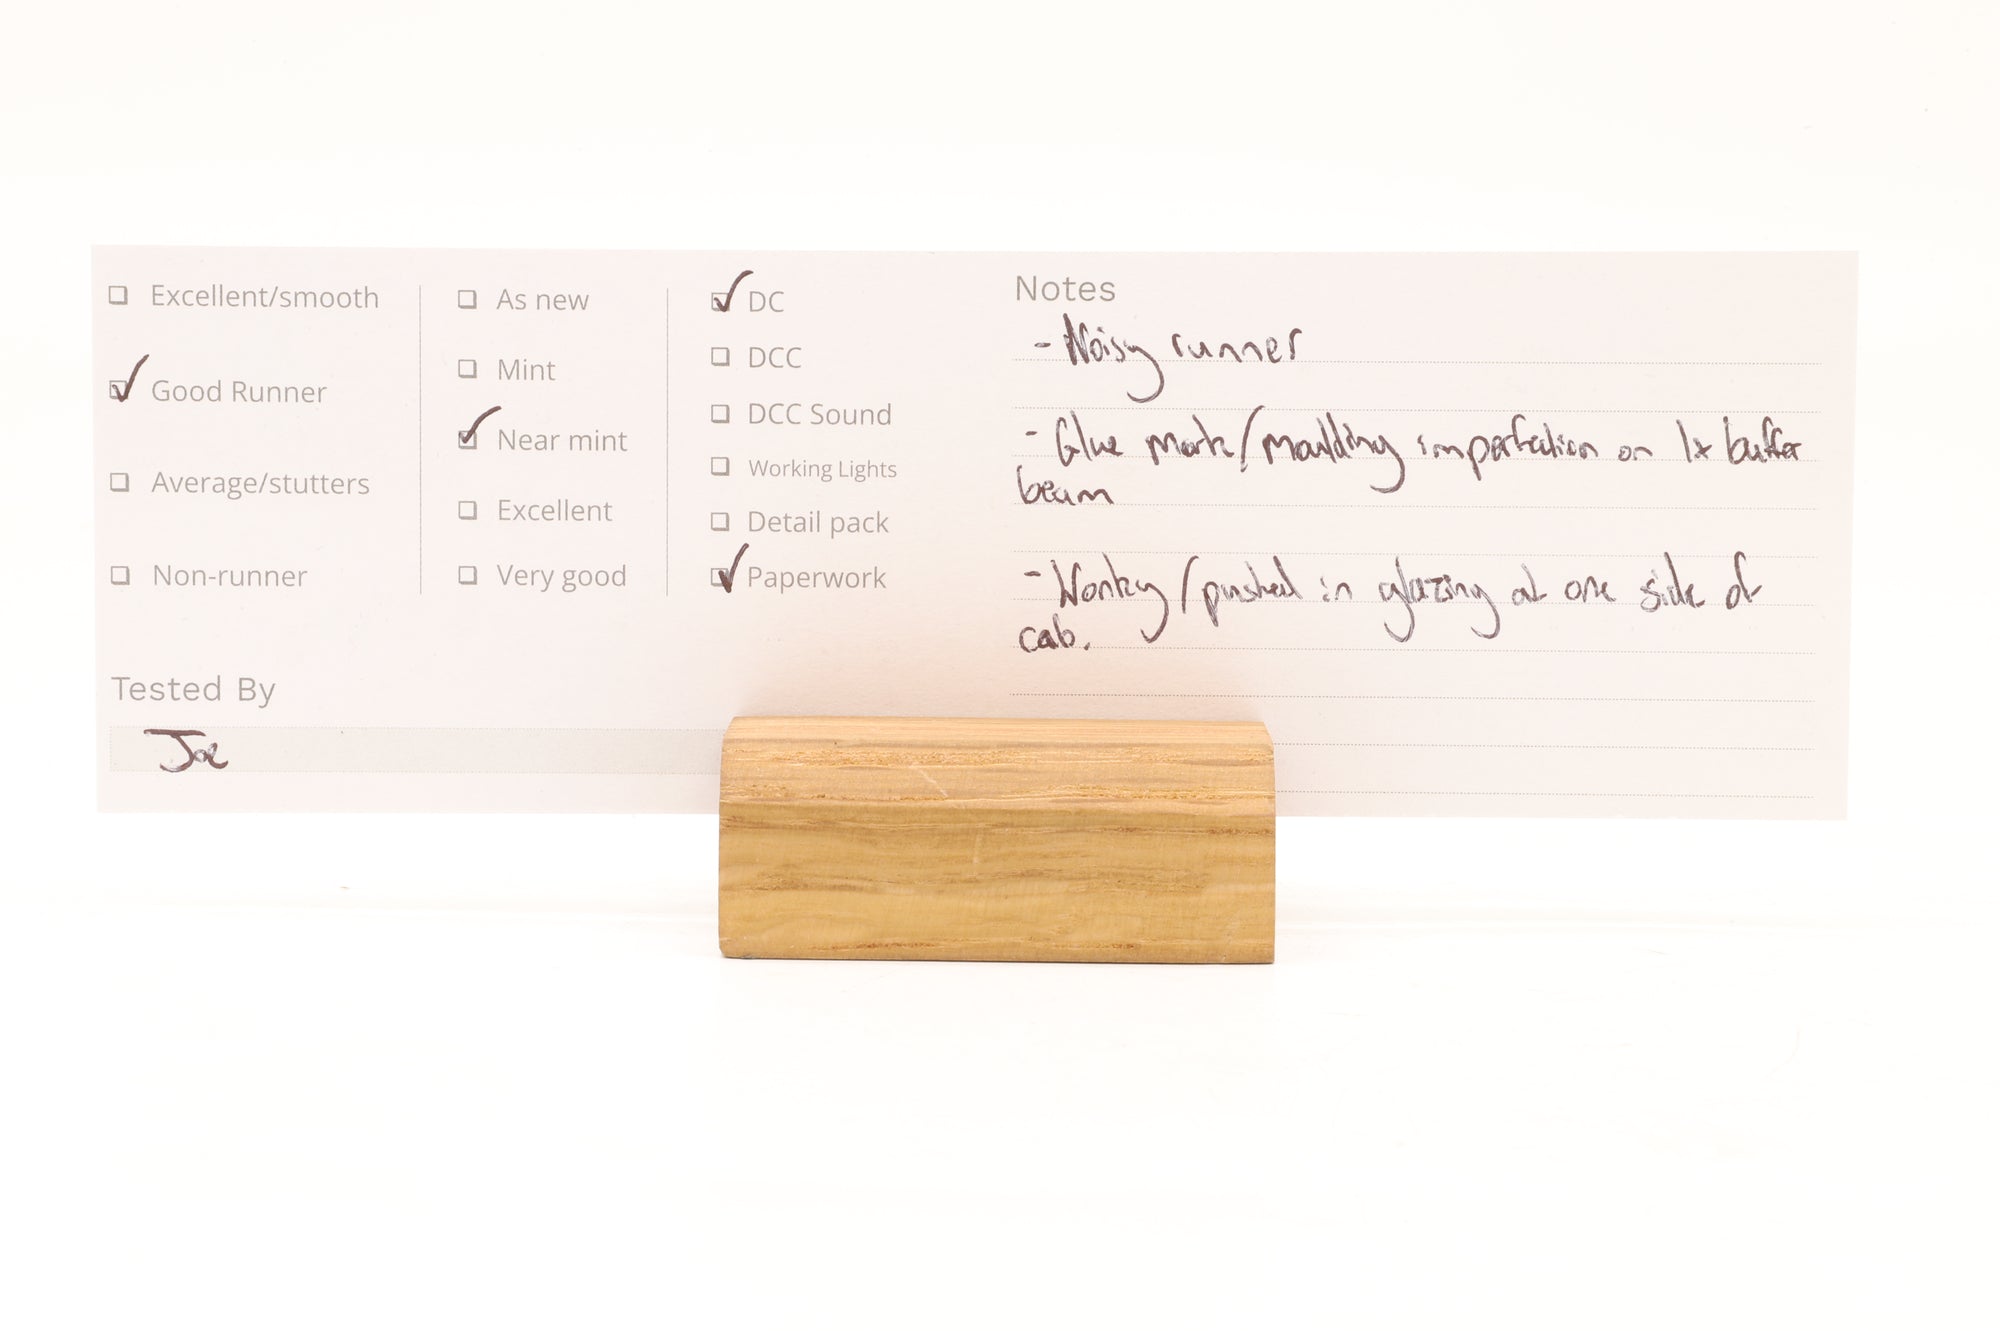 Excellent/smooth
Good Runner
Average/stutters
Non-runner
As new
Mint
Near mint
Excellent
Very good
DC
DCC
DCC Sound
Working Lights
Detail pack
Paperwork
Notes
- Noisy runner
- Glue mark/moulding imperfection on 1x buffer
beam
- Wonky/pushed in glazing at one side of
cab.
Tested By
Joe